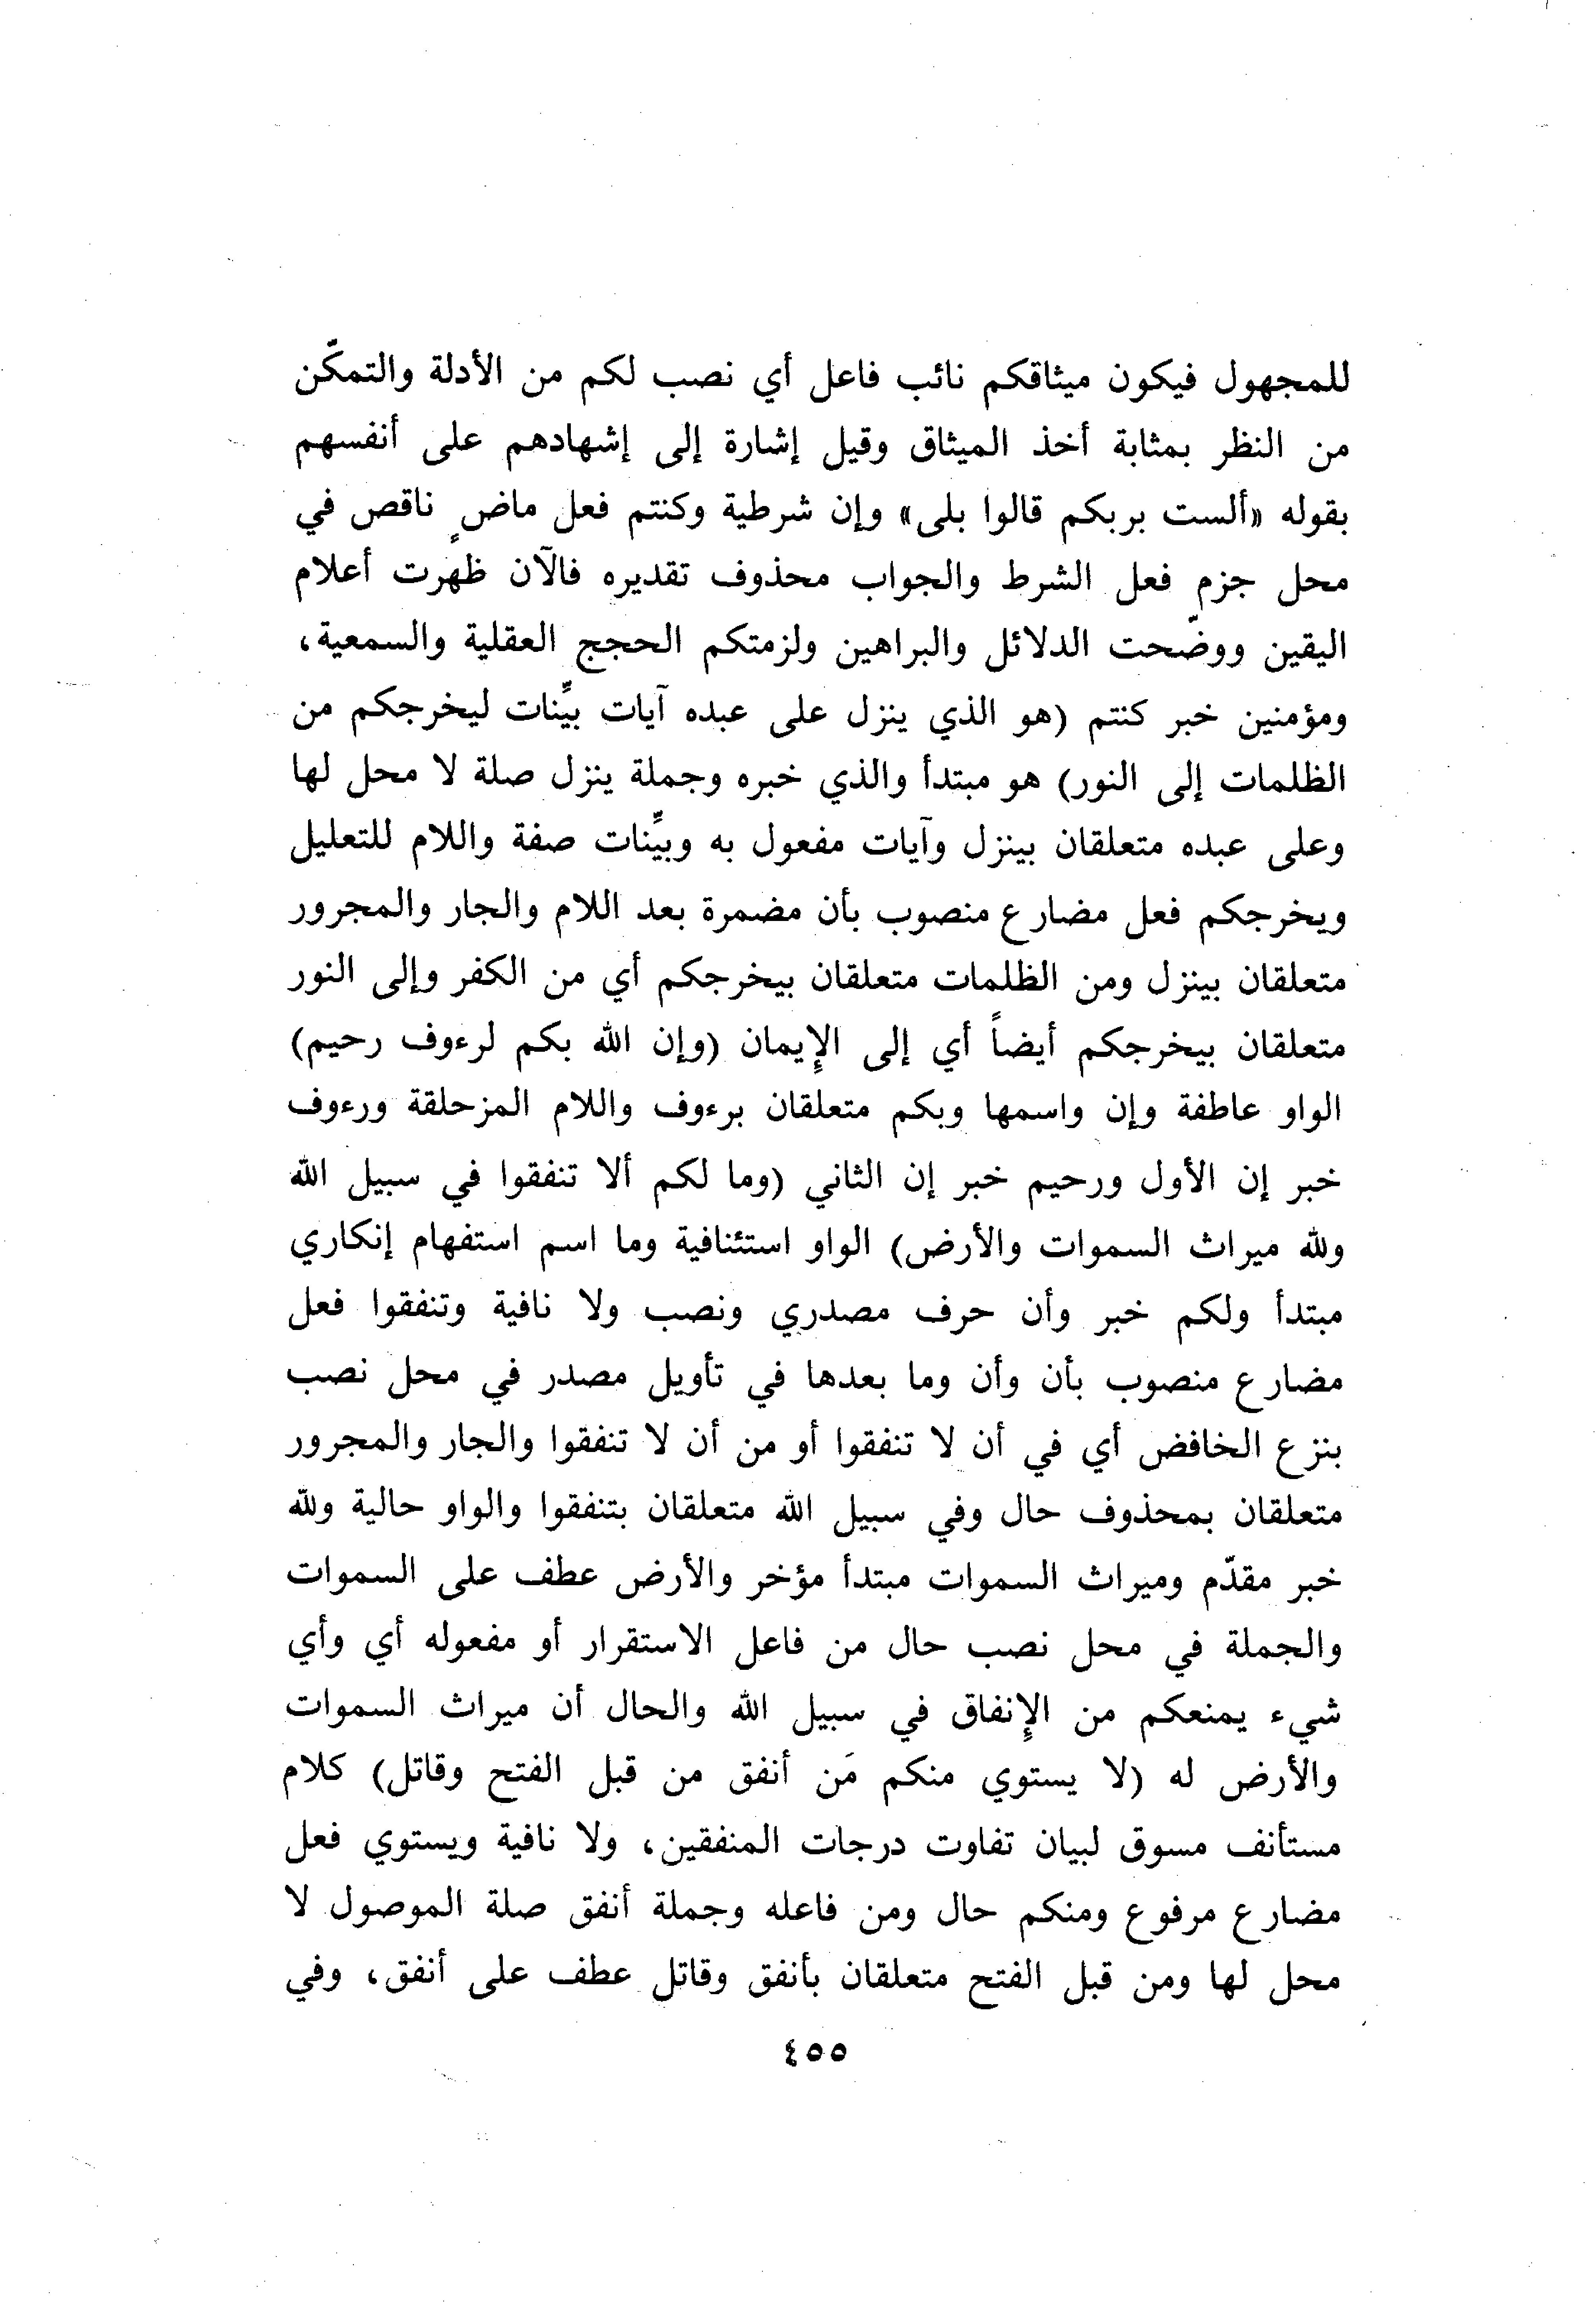 للمجهول فيكون ميثاقكم نائب فاعل أي نصب لكم من الأدلة والتمكّن
من النظر بمثابة أخذ الميثاق وقيل إشارة إلى إشهادهم على أنفسهم
بقوله «ألست بربكم قالوا بلى» وإن شرطية وكنتم فعل ماضٍ ناقص في
محل جزم فعل الشرط والجواب محذوف تقديره فالآن ظهرت أعلام
اليقين ووضّحت الدلائل والبراهين ولزمتكم الحجج العقلية والسمعية،
ومؤمنين خبر كنتم (هو الذي ينزل على عبده آيات بيِّنات ليخرجكم من
الظلمات إلى النور) هو مبتدأ والذي خبره وجملة ينزل صلة لا محل لها
وعلى عبده متعلقان بينزل وآيات مفعول به وبيِّنات صفة واللام للتعليل
ويخرجكم فعل مضارع منصوب بأن مضمرة بعد اللام والجار والمجرور
متعلقان بينزل ومن الظلمات متعلقان بيخرجكم أي من الكفر وإلى النور
متعلقان بيخرجكم أيضاً أي إلى الإيمان (وإن الله بكم لرءوف رحيم)
الواو عاطفة وإن واسمها وبكم متعلقان برءوف واللام المزحلقة ورءوف
خبر إن الأول ورحيم خبر إن الثاني (وما لكم ألا تنفقوا في سبيل الله
ولله ميراث السموات والأرض) الواو استئنافية وما اسم استفهام إنكاري
مبتدأ ولكم خبر وأن حرف مصدري ونصب ولا نافية وتنفقوا فعل
مضارع منصوب بأن وأن وما بعدها في تأويل مصدر في محل نصب
بنزع الخافض أي في أن لا تنفقوا أو من أن لا تنفقوا والجار والمجرور
متعلقان بمحذوف حال وفي سبيل الله متعلقان بتنفقوا والواو حالية ولله
خبر مقدّم وميراث السموات مبتدأ مؤخر والأرض عطف على السموات
والجملة في محل نصب حال من فاعل الاستقرار أو مفعوله أي وأي
شيء يمنعكم من الإنفاق في سبيل الله والحال أن ميراث السموات
والأرض له (لا يستوي منكم مَن أنفق من قبل الفتح وقاتل) كلام
مستأنف مسوق لبيان تفاوت درجات المنفقين، ولا نافية ويستوي فعل
مضارع مرفوع ومنكم حال ومن فاعله وجملة أنفق صلة الموصول لا
محل لها ومن قبل الفتح متعلقان بأنفق وقاتل عطف على أنفق، وفي
٤٥٥